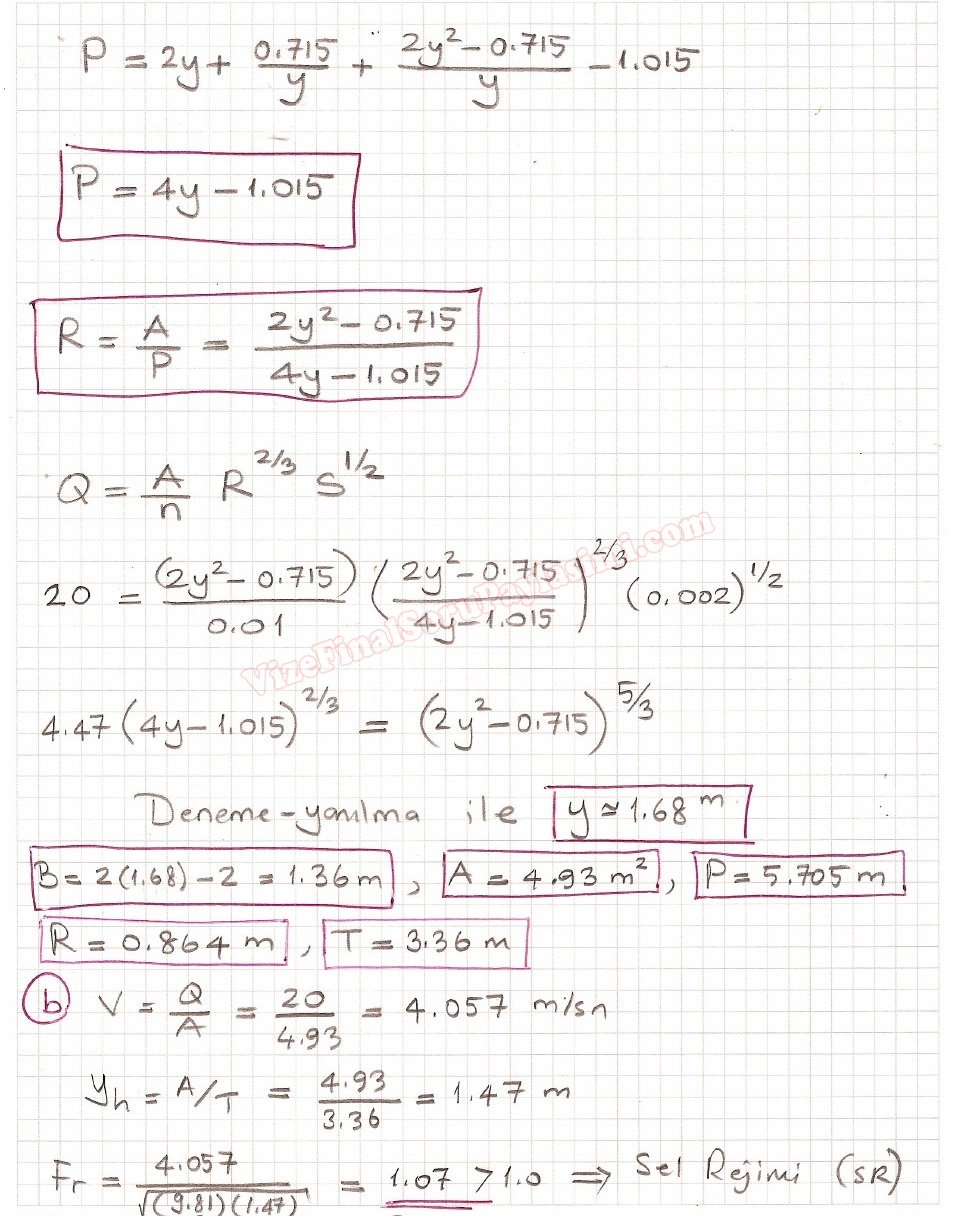 P = 2y + 0.715/y + (2y² - 0.715)/y - 1.015
P = 4y - 1.015
R = A/P = (2y² - 0.715)/(4y - 1.015)
Q = A/n R^2/3 S^1/2
20 = (2y² - 0.715)/0.01 ((2y² - 0.715)/(4y - 1.015))^2/3 (0.002)^1/2
VizeFinalSoruPaylasimi.com
4.47 (4y - 1.015)^2/3 = (2y² - 0.715)^5/3
Deneme-yanılma ile y ≃ 1.68 m
B = 2(1.68) - 2 = 1.36 m , A = 4.93 m² , P = 5.705 m
R = 0.864 m , T = 3.36 m
(b) V = Q/A = 20/4.93 = 4.057 m/sn
yh = A/T = 4.93/3.36 = 1.47 m
Fr = 4.057/√((9.81)(1.47)) = 1.07 > 1.0 ⇒ Sel Rejimi (SR)